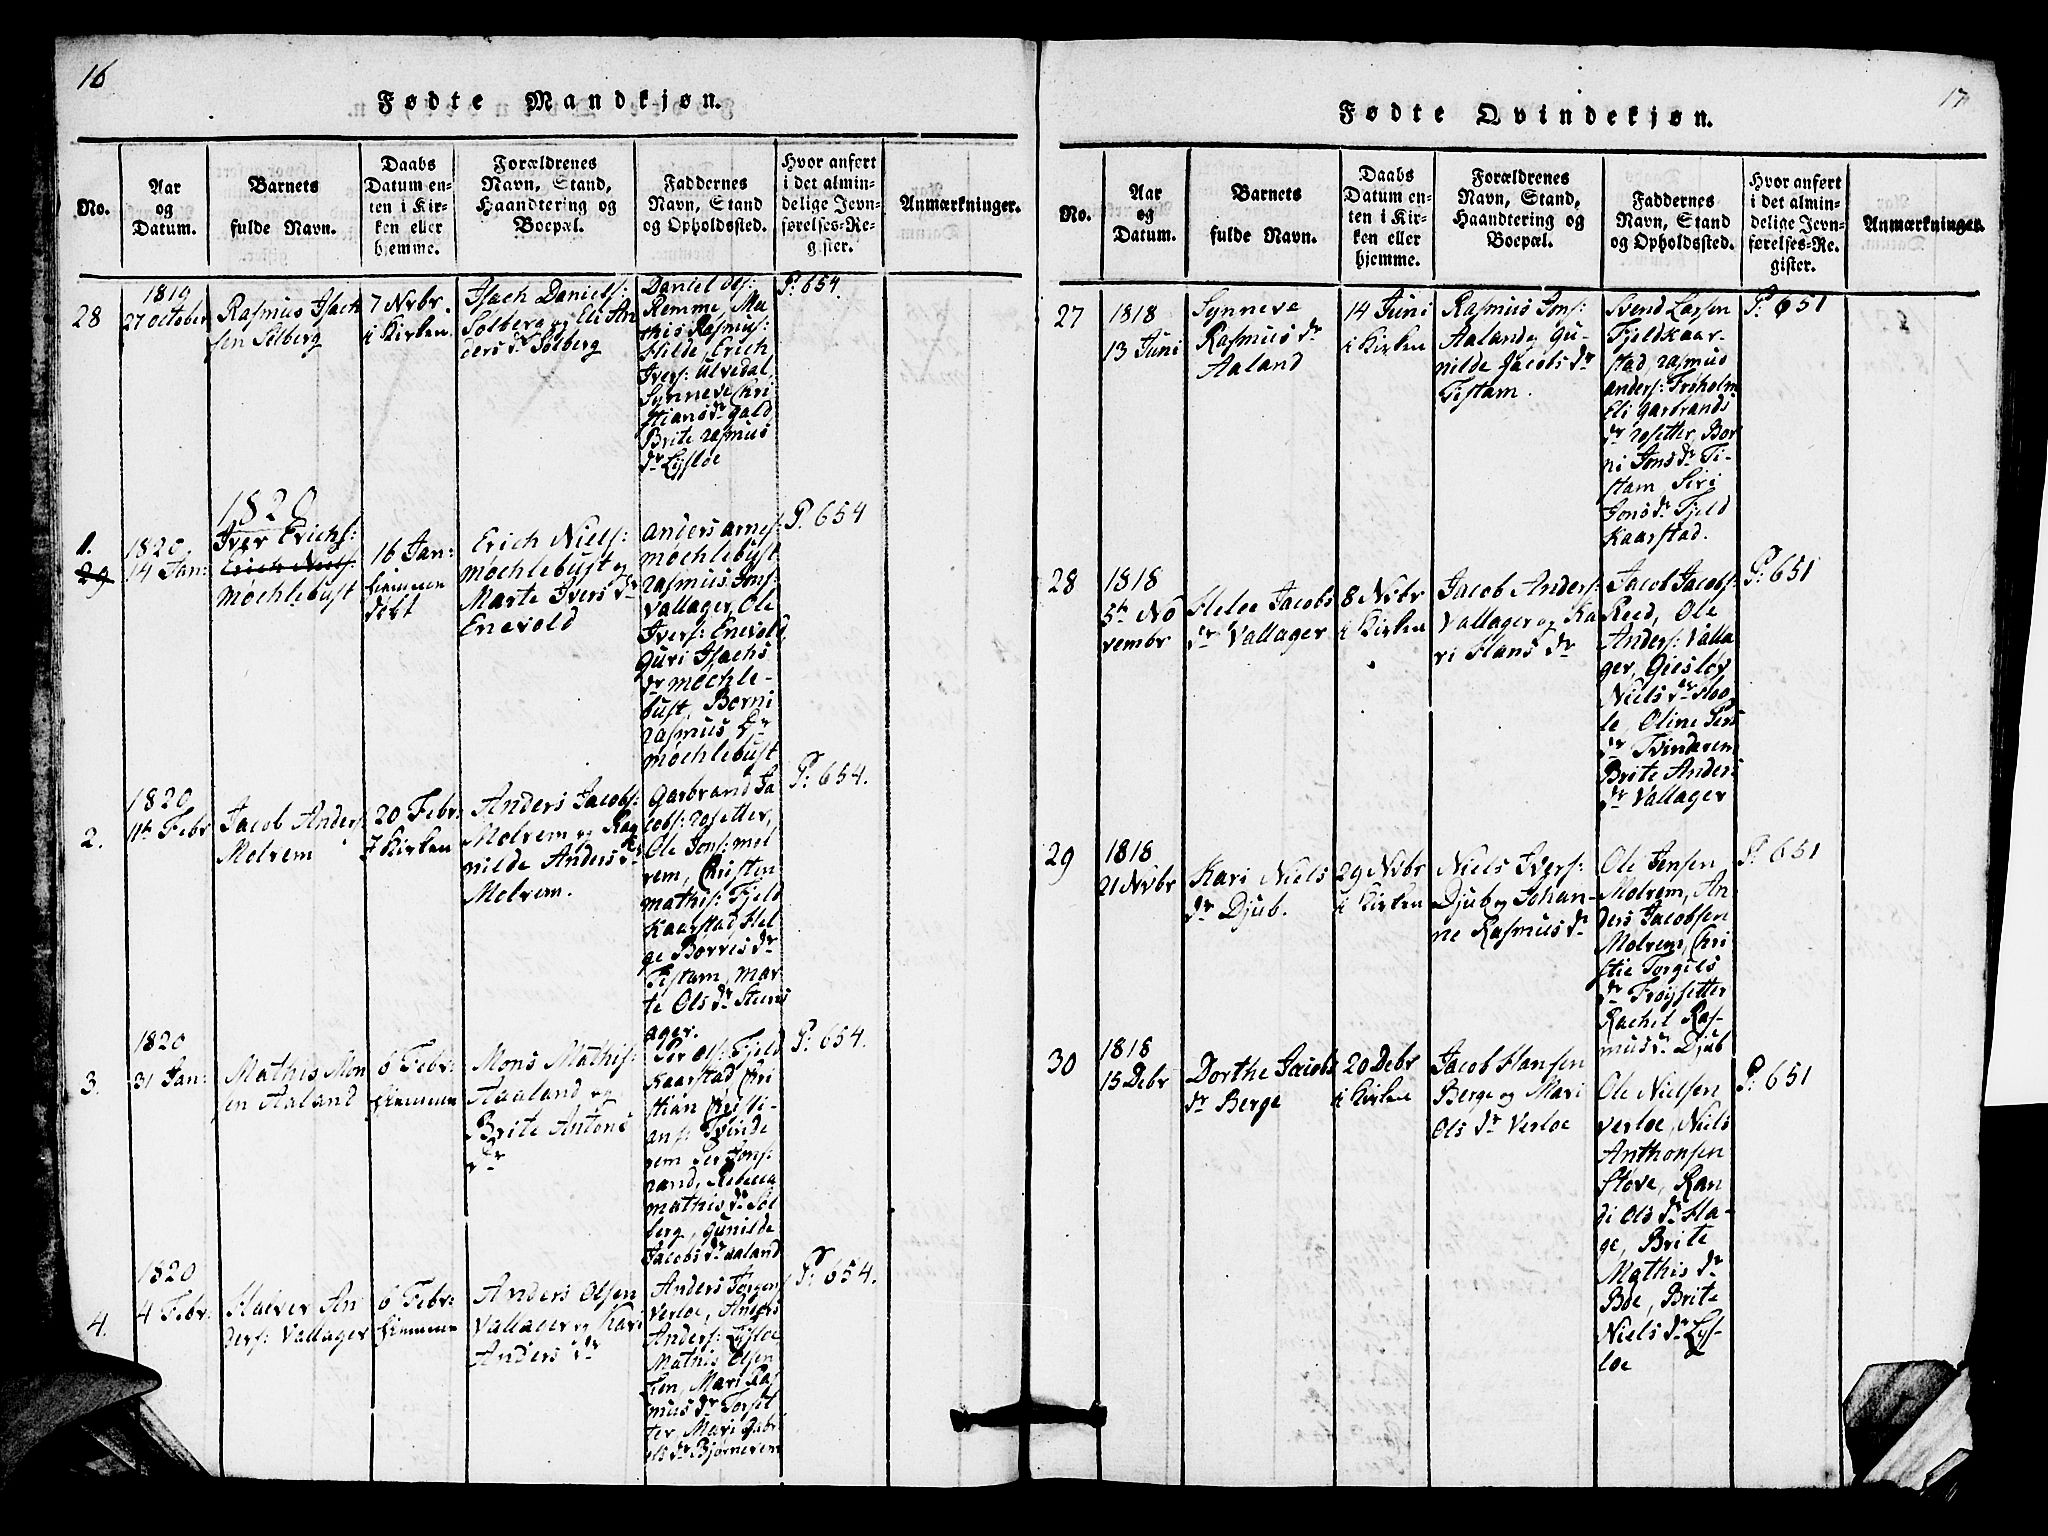 16
Fødte Mandkjøn.
No.
Aar
og
Datum.
Barnets
fulde Navn.
Daabs
Datum en-
ten i Kir-
ken eller
hjemme.
Forældrenes
Navn, Stand,
Haandtering og
Boepæl.
Faddernes
Navn, Stand
og Opholdssted.
Hvor anført
i det almin-
delige Jevn-
førelses-Re-
gister.
Anmærkninger.
28
1819
27 October
Rasmus Isach
sen Solberg
7 Nvbr.
i Kirken
Isach Daniels:
Solberg og Eli An
ders dr Solberg
Daniel Ols:
Remme, Ma
this Rasmus:
Hilde, Erich
Ivers: Ulvedal,
Synneve Chri
stians dr Gald
Brite Rasmus
dr Lysloe
P: 654.
1820
1.
29
1820
14 Jan:
Iver Erichs:
Erich Niels:
Møchlebust
16 Jan:
hjemme
døbt
Erich Niels:
Møchlebust og
Marte Ivers dr
Enevold
Anders Arnes:
Møchlebust
Rasmus Jons:
Vallager, Ole
Ivers: Enevold,
Guri Isachs
dr Møchle-
bust, Borni
Rasmus dr
Møchlebust
P: 654
2.
1820
11th Febr
Jacob Anders
Molvem
20 Febr:
i Kirken
Anders Jacobs:
Molvem og Rag
nilde Anders dr
Molvem.
Garbrand Ja
cobs: Rosetter,
Ole Jons: Mol
vem, Christen
Mathis: Fjeld
Kaarstad Hel
ge Borres dr
Tistam, Mar
te Ols dr Steens
ager.
P: 654.
3.
1820
31 Jan:
Mathis Mon
sen Aaland
6 Febr:
hjemme
Mons Mathis:
Aaland og
Brite Antons
dr
Per Ols: Fjeld
Kaarstad Chri
stian Christi-
ans: Tvinde
rem Per Jons:
rand, Rebecca
Mathis dr Sol
berg, Gunilde
Jacobs dr Aaland
P: 654.
4.
1820
4 Febr:
Halver An
ders: Vallager
6 Febr:
hjemme
Anders Olsen
Vallager og Kari
Anders dr
Anders Jorgens
Verloe, Anders
Anders: Lysloe
Mathis Olsen
Mari Ras
mus dr Torset
ter, Mari Gabri
els dr Bjørnerem
P: 654.
17
Fødte Qvindekjøn.
No.
Aar
og
Datum.
Barnets
fulde Navn.
Daabs
Datum en-
ten i Kir-
ken eller
hjemme.
Forældrenes
Navn, Stand,
Haandtering og
Boepæl.
Faddernes
Navn, Stand
og Opholdssted.
Hvor anført
i det almin-
delige Jevn-
førelses-Re-
gister.
Anmærkninger.
27
1818
13 Juni
Synneve
Rasmus dr
Aaland
14 Juni
i Kirken
Rasmus Jons:
Aaland og Gu-
nilde Jacobs dr
Tistam.
Svend Larsen
Fjeldkaar-
stad, Rasmus
Anders: Frøholm
Eli Garbrands
dr Rosetter, Bor
ni Jons dr Ti-
stam, Siri
Jons dr Fjeld
Kaarstad.
P: 651
28
1818
5th No
vembr
Heloe Jacobs
dr Vallager
8 Nvbr
i Kirken
Jacob Anders:
Vallager og Ka
ri Hans dr
Jacob Jacobs:
Reed, Ole
Anders: Valla
ger, Gieslov
Niels dr Hoo
le, Oline Pers
dr Tvinderem
Brite Anders
dr Vallager
P: 651
29
1818
21 Nvbr
Kari Niels
dr Djub.
29 Nvbr
i Kirken
Niels Ivers:
Djub og Johan-
ne Rasmus dr
Ole Jensen
Molvem, An
ders Jacobsen
Molvem, Chri
stie Torgils
dr Frøysetter
Rachel Ras-
mus dr Djub
P: 651
30
1818
15 Debr
Dorthe Jacobs
dr Berge
20 Debr
i Kirken
Jacob Hansen
Berge og Mari
Ols dr Verloe
Ole Nielsen
Verloe, Niels
Anthonsen
Støve, Ran
di Ols dr Ha-
ge, Brite
Mathis dr
Boe, Brite
Niels dr Lys-
loe
P: 651